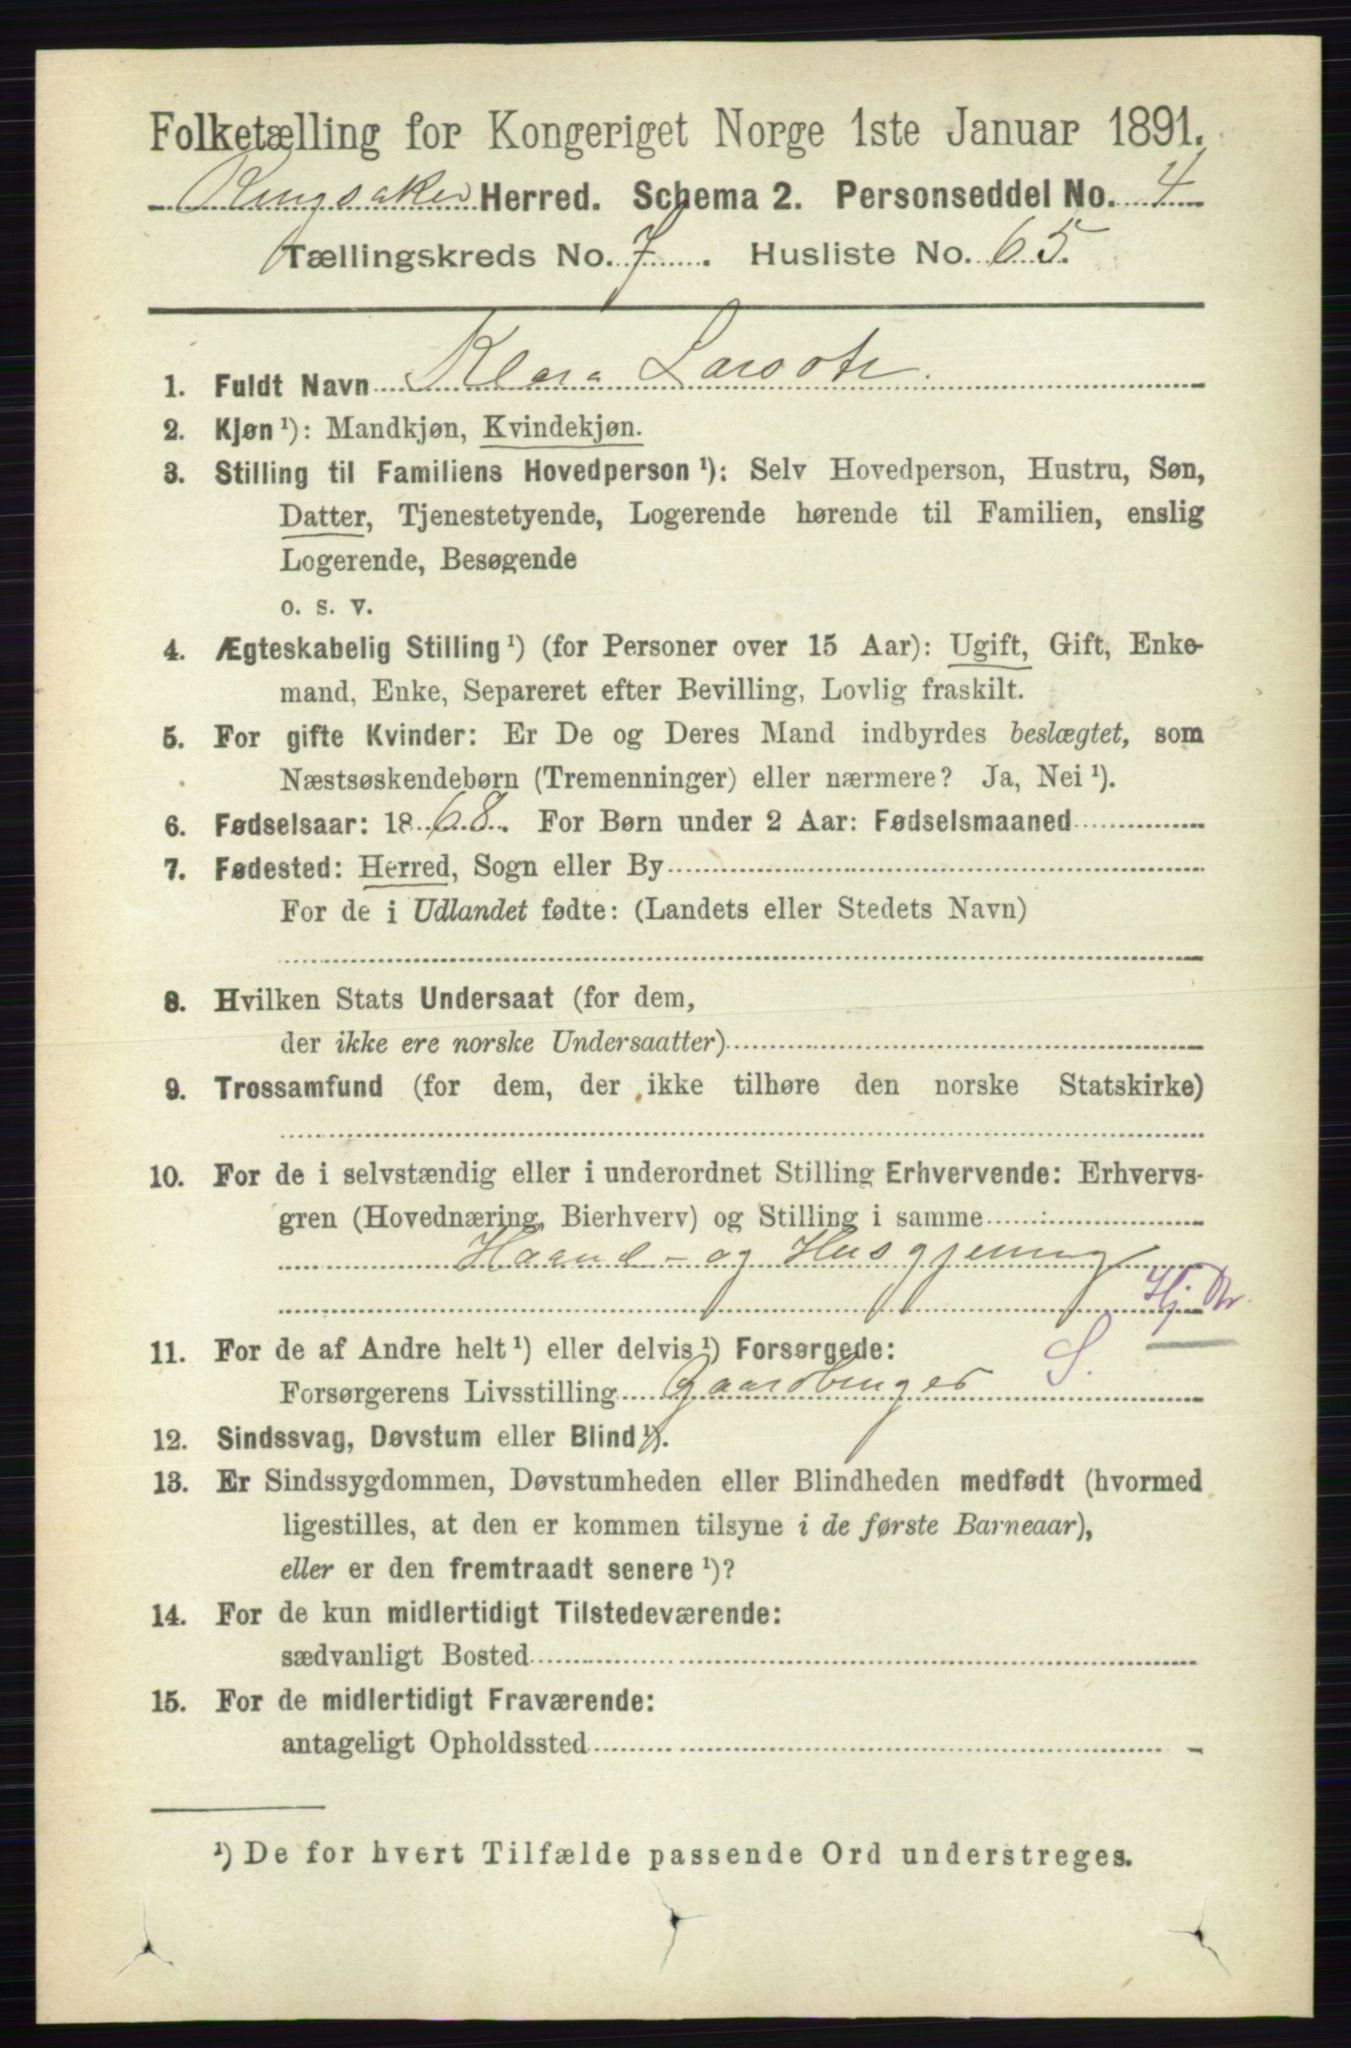 Folketælling for Kongeriget Norge 1ste Januar 1891.
Ringsaker Herred. Schema 2. Personseddel No. 4
Tællingskreds No. 7. Husliste No. 65.
1. Fuldt Navn Klara Larsdtr.
2. Kjøn ¹): Mandkjøn, Kvindekjøn.
3. Stilling til Familiens Hovedperson ¹): Selv Hovedperson, Hustru, Søn,
Datter, Tjenestetyende, Logerende hørende til Familien, enslig
Logerende, Besøgende
o. s. v.
4. Ægteskabelig Stilling ¹) (for Personer over 15 Aar): Ugift, Gift, Enke-
mand, Enke, Separeret efter Bevilling, Lovlig fraskilt.
5. For gifte Kvinder: Er De og Deres Mand indbyrdes beslægtet, som
Næstsøskendebørn (Tremenninger) eller nærmere? Ja, Nei ¹).
6. Fødselsaar: 1868. For Børn under 2 Aar: Fødselsmaaned
7. Fødested: Herred, Sogn eller By
For de i Udlandet fødte: (Landets eller Stedets Navn)
8. Hvilken Stats Undersaat (for dem,
der ikke ere norske Undersaatter)
9. Trossamfund (for dem, der ikke tilhøre den norske Statskirke)
10. For de i selvstændig eller i underordnet Stilling Erhvervende: Erhvervs-
gren (Hovednæring, Bierhverv) og Stilling i samme
Haand- og Husgjerning
Hj Dtr.
11. For de af Andre helt ¹) eller delvis ¹) Forsørgede:
Forsørgerens Livsstilling Gaardbruger S.
12. Sindssvag, Døvstum eller Blind ¹).
13. Er Sindssygdommen, Døvstumheden eller Blindheden medfødt (hvormed
ligestilles, at den er kommen tilsyne i de første Barneaar),
eller er den fremtraadt senere ¹)?
14. For de kun midlertidigt Tilstedeværende:
sædvanligt Bosted
15. For de midlertidigt Fraværende:
antageligt Opholdssted
¹) De for hvert Tilfælde passende Ord understreges.